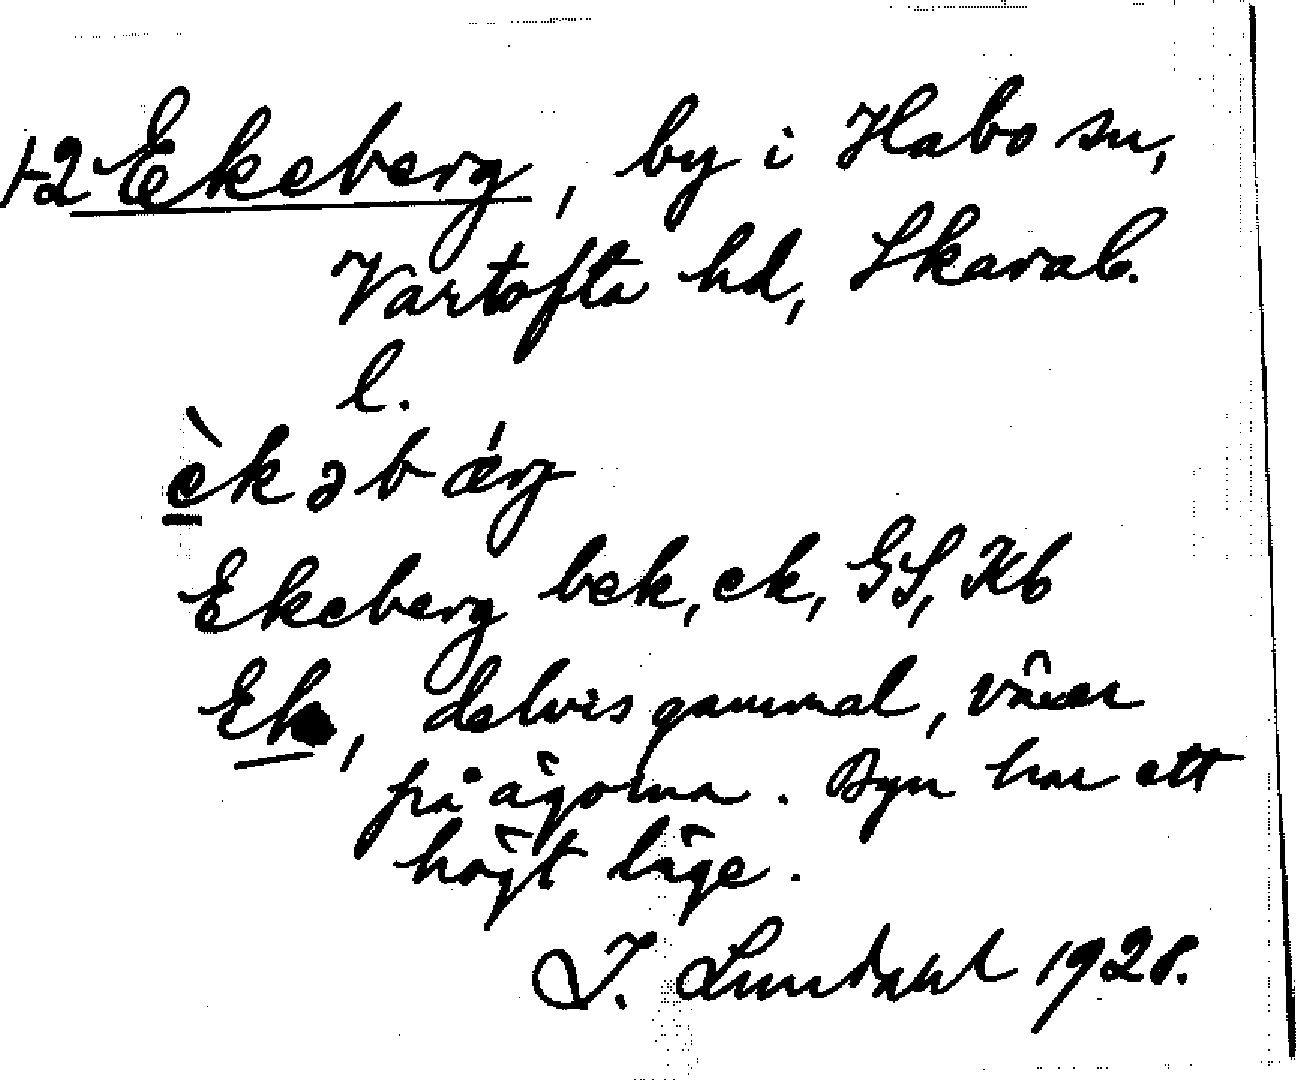 1-2 Ekeberg, by i Habo sn,
Vartofta hd, Skarab.
l.
èkəbærg
Ekeberg bek, ek, GS, Kb
Ek, delvis gammal, växer
på ägorna. Byn har ett
högt läge.
I. Lundahl 1928.